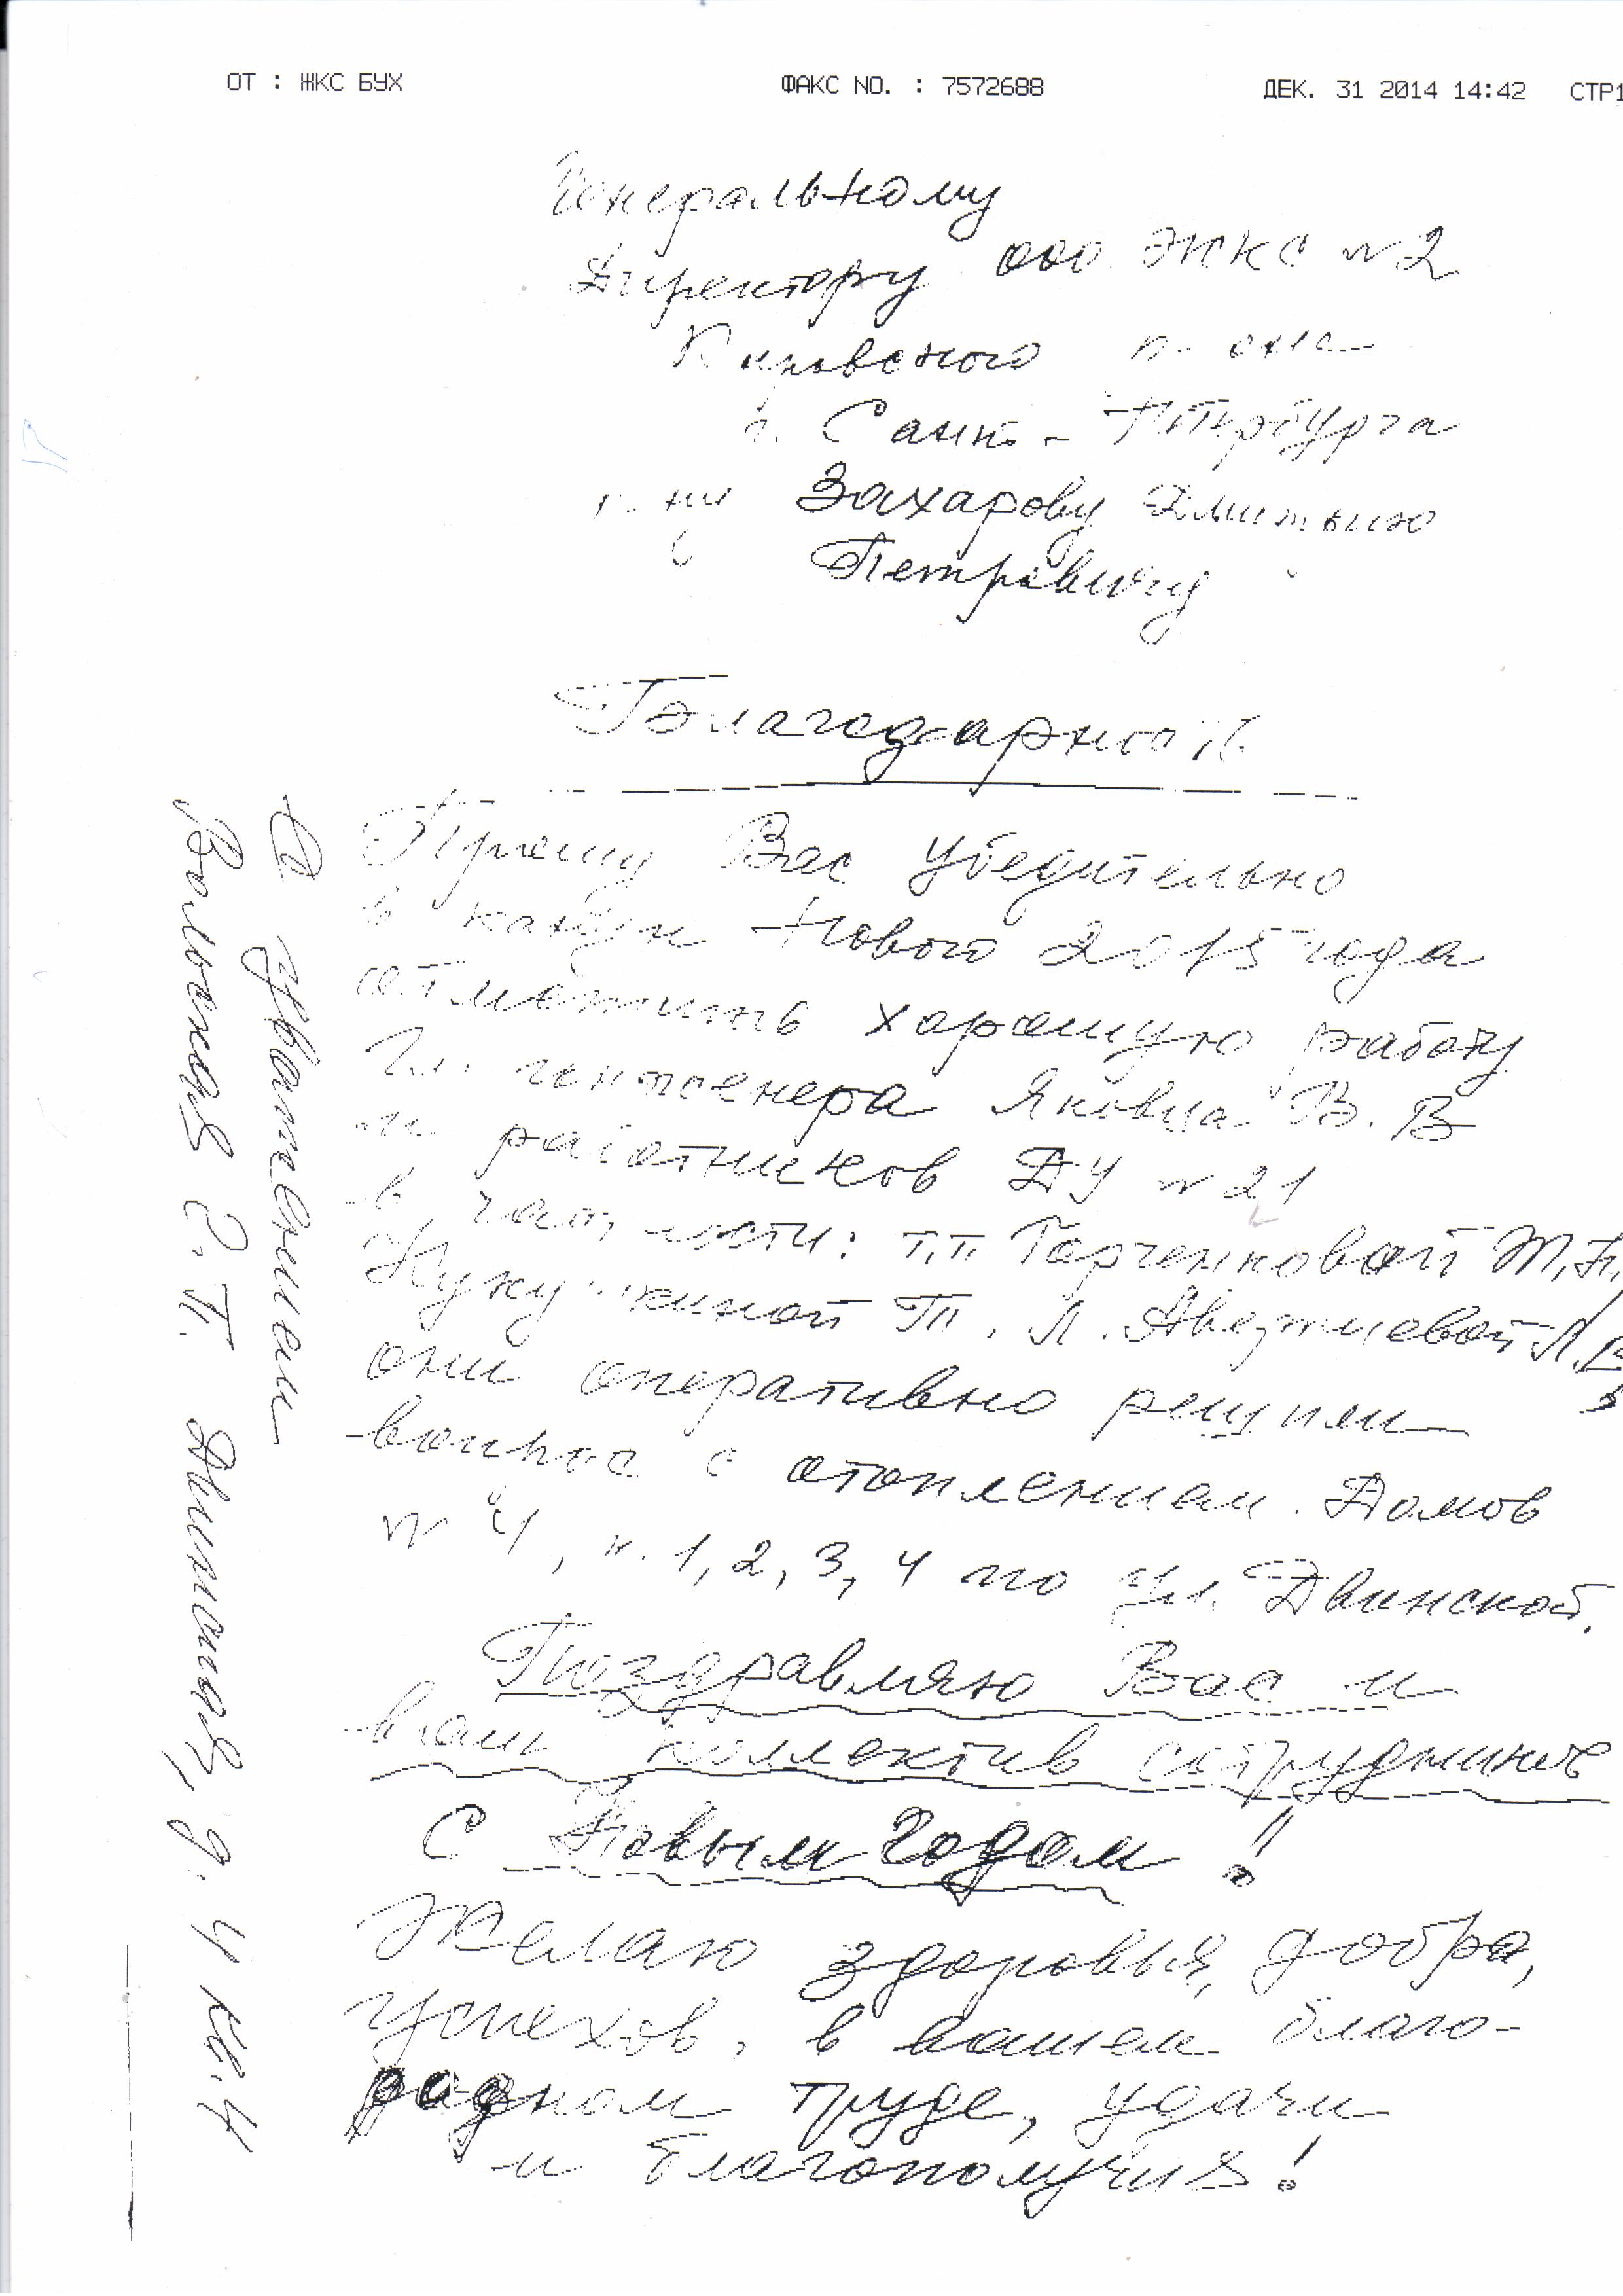 ОТ : ЖКС БУХ ФАКС NO. : 7572688 ДЕК. 31 2014 14:42 СТР1
Генеральному
Директору ООО ЖКС №2
Кировского р-она
г. Санкт-Петербурга
г-ну Захарову Дмитрию
Петровичу
Благодарность
Прошу Вас убедительно
в канун Нового 2015 года
отметить хорошую работу
Гл. инженера Яковца В. В
и работников ДУ №21
в частности: т.т. Горченковой Т.Н.
Кукушкиной Т. Л.
они оперативно решили
вопрос с отоплением. Домов
№ 4, к. 1, 2, 3, 4 по ул. Двинской.
Поздравляю Вас и
ваш коллектив сотрудников
С Новым Годом!
Желаю здоровья, добра,
успехов, в вашем благо-
родном труде, удачи
и благополучия!
С уважением
Вольская Двинская, д. 4 кв. 4